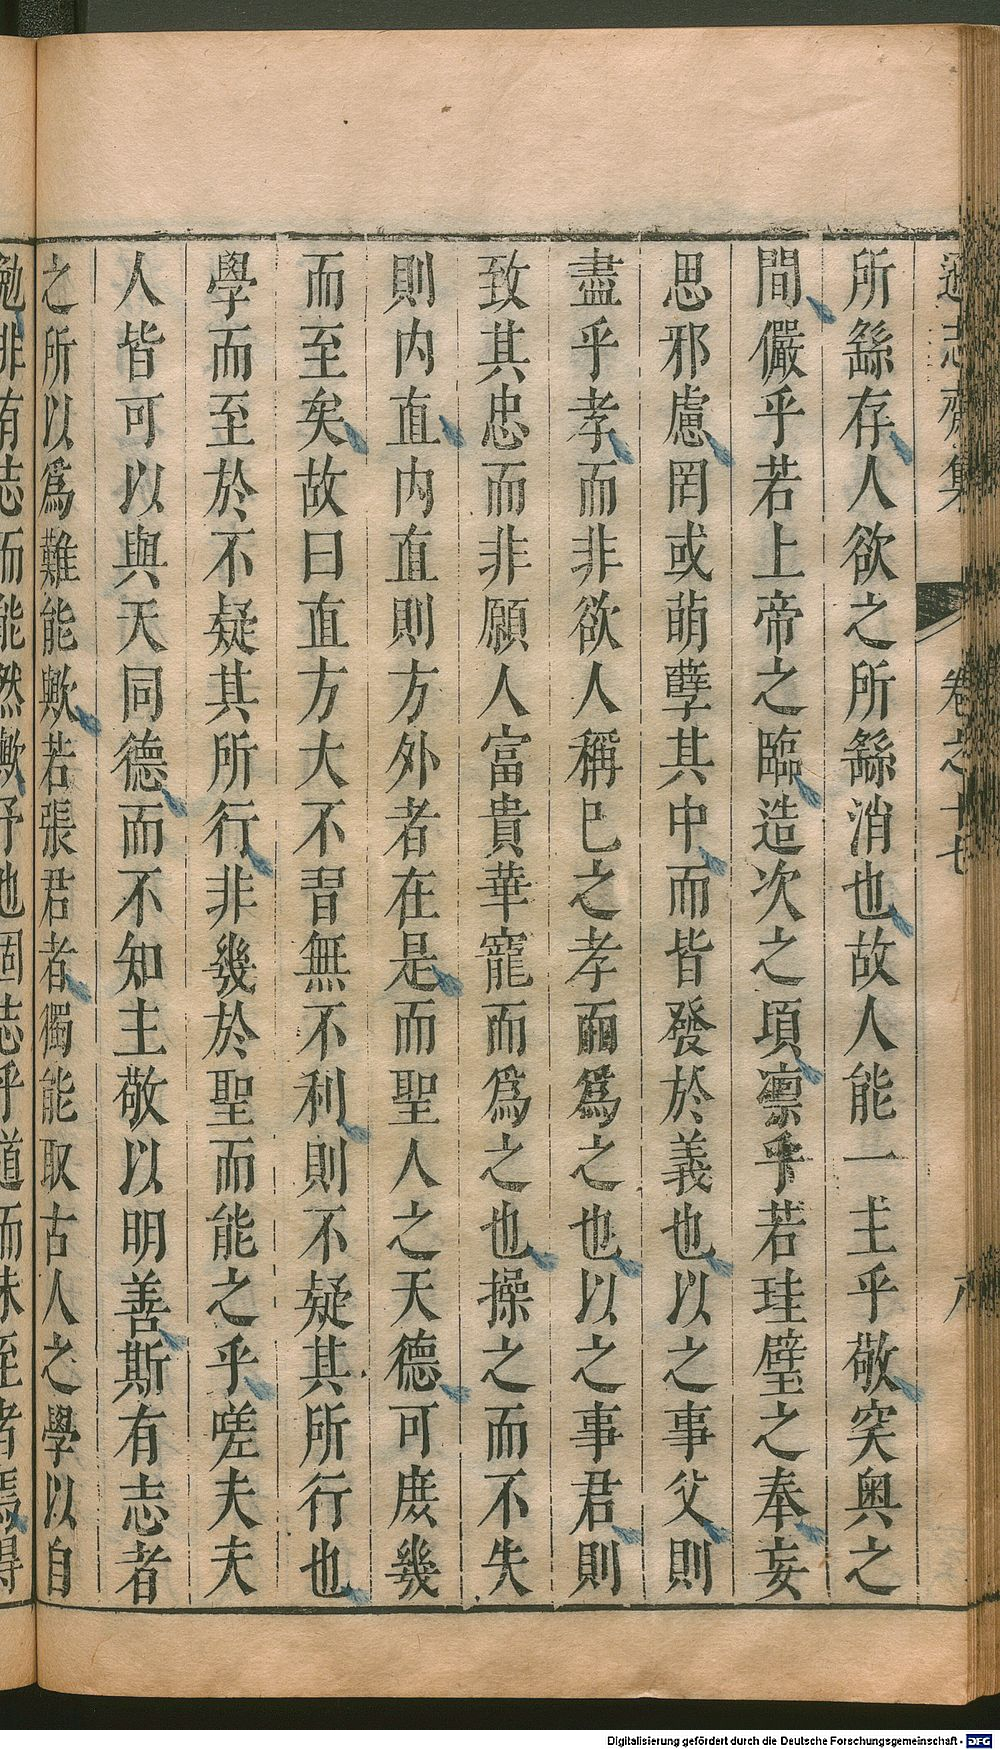 遜志齋集 卷之十七
所繇存人欲之所繇消也故人能一主乎敬突奥之
間儼乎若上帝之臨造次之項凛乎若珪璧之奉妄
思邪慮罔或萌孽其中而皆發於義也以之事父則
盡乎孝而非欲人稱巳之孝而爲之也以之事君則
致其忠而非願人富貴華寵而爲之也操之而不失
則内直内直則方外者在是而聖人之天德可庻幾
而至矣故曰直方大不習無不利則不疑其所行也
學而至於不疑其所行非幾於聖而能之乎嗟夫夫
人皆可以與天同德而不知主敬以明善斯有志者
之所以爲難能歟若張君者獨能取古人之學以自
勉非有志而能然歟予也固志乎道而未至者焉得
Digitalisierung gefördert durch die Deutsche Forschungsgemeinschaft - DFG